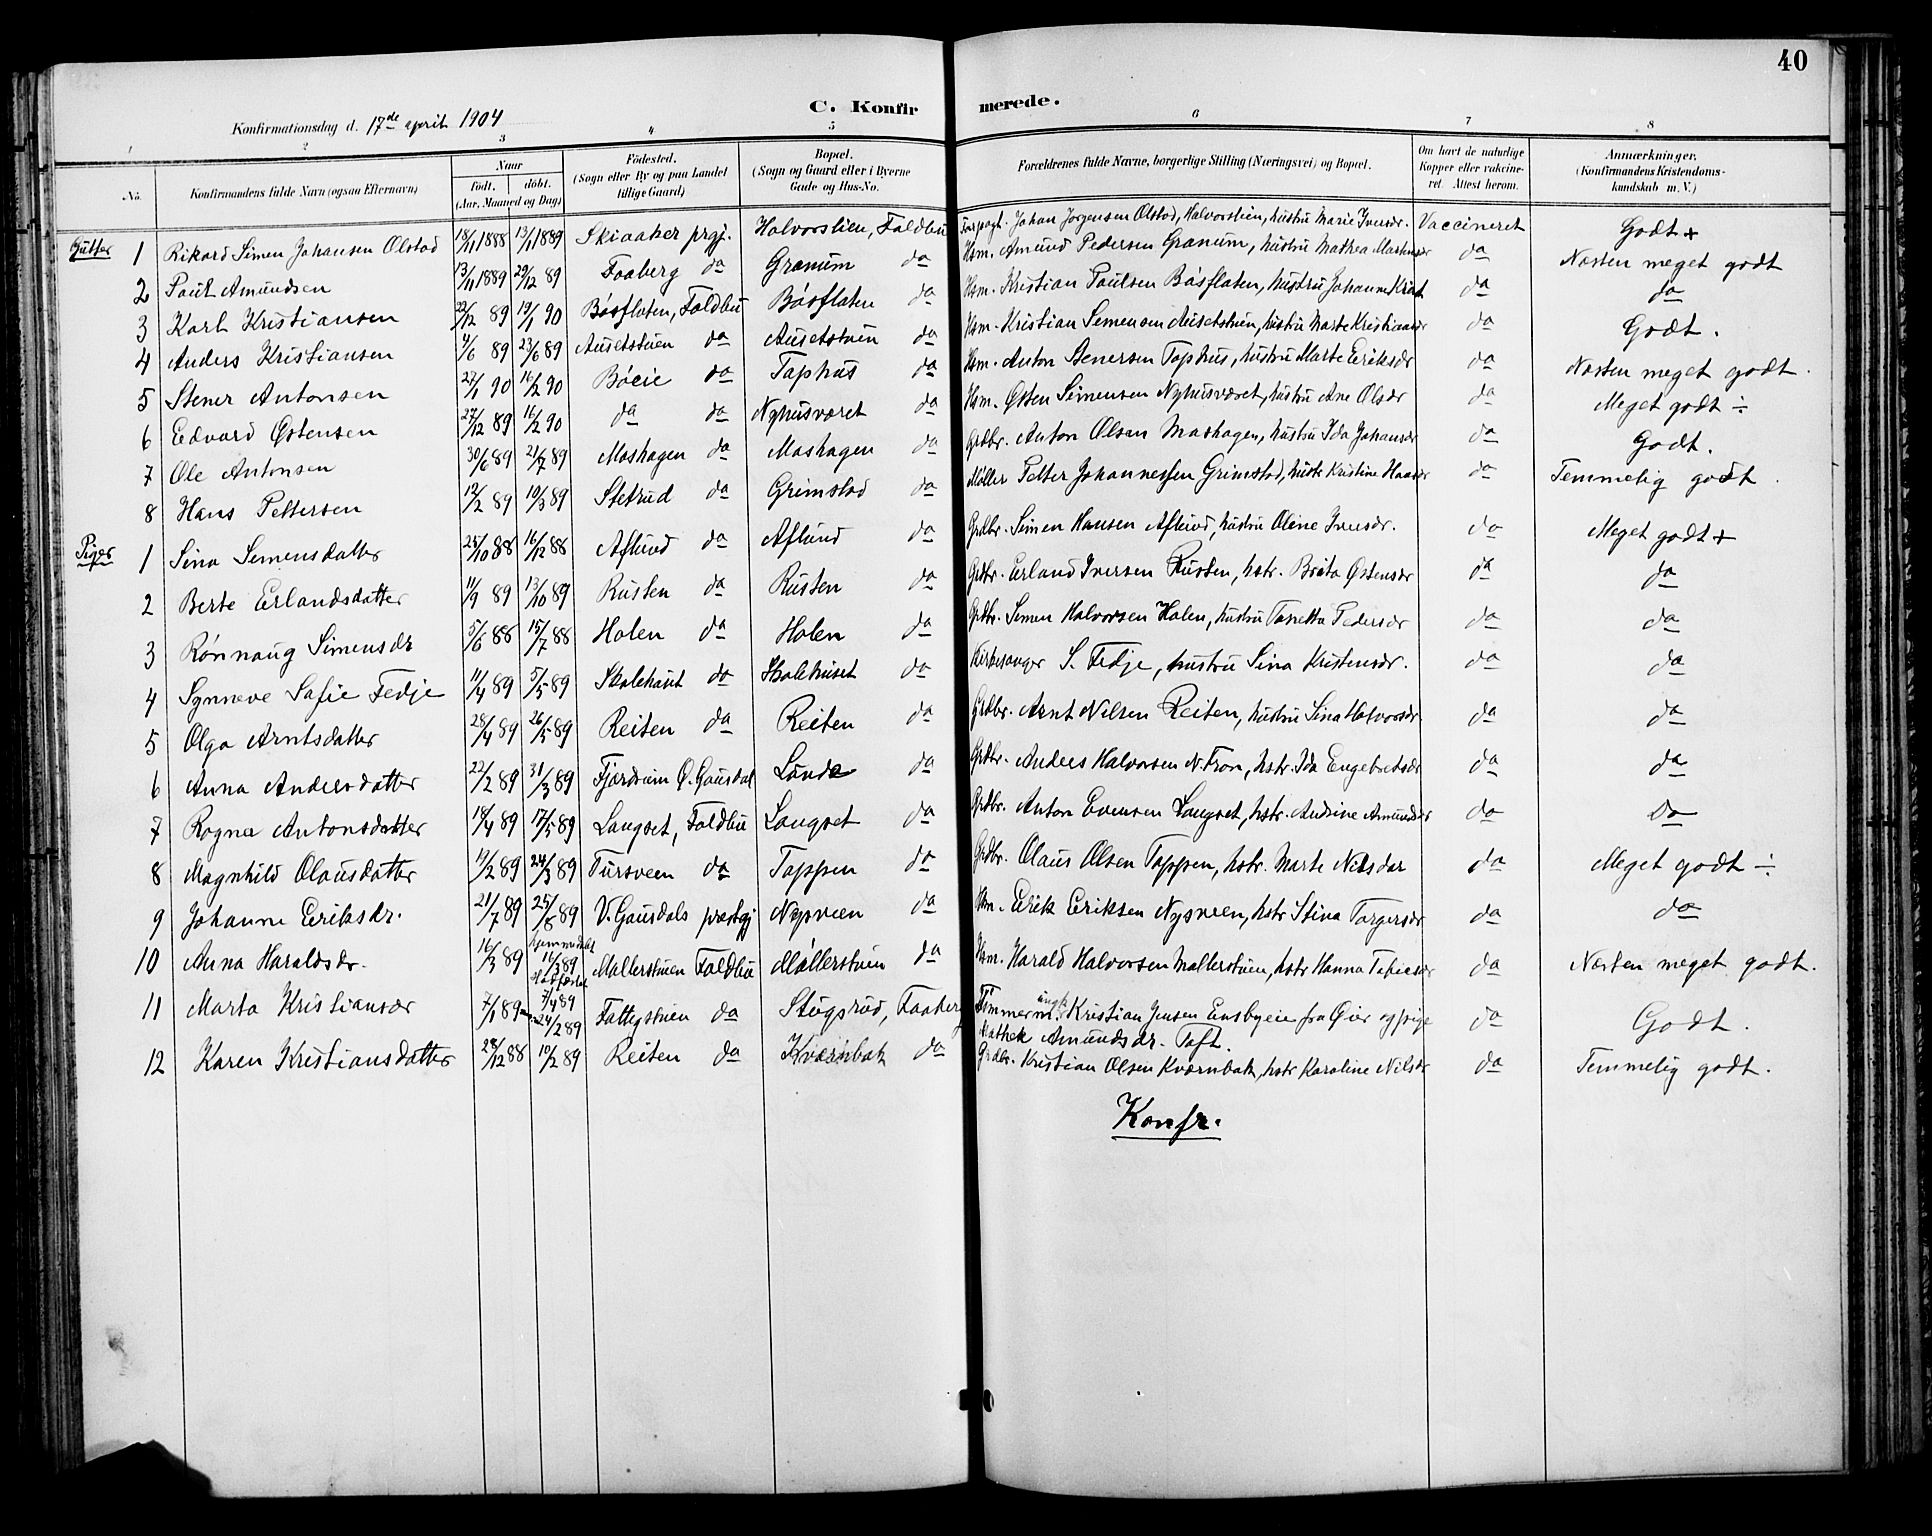 40
C. Konfirmerede.
Konfirmationsdag d. 17de april 1904
1 2 3 4 5 6 7 8
No. Konfirmandens fulde Navn (ogsaa Efternavn) Naar født. døbt. (Aar, Maaned og Dag) Fødested. (Sogn eller By og paa Landet tillige Gaard) Bopæl. (Sogn og Gaard eller i Byerne Gade og Hus-No. Forældrenes fulde Navne, borgerlige Stilling (Næringsvei) og Bopæl. Om havt de naturlige Kopper eller vakcineret. Attest herom. Anmærkninger. (Konfirmandens Kristendomskundskab m. V.)
Gutter 1 Rikard Simen Johansen Olstad 18/11 1888 13/1 1889 Skiaaker prgj. Halvorslien, Foldbu Johan Jørgensen Olstad, Halvorslien, hustru Marie Iversdr. Vaccineret Godt +
2 Paul Amundsen 13/11 1889 29/12 89 Faaberg da Granum da Hsm. Amund Pedersen Granum, hustru Mathea Martinsdr da Næsten meget godt
3 Karl Kristiansen 22/12 89 19/1 90 Bøsflaten, Foldbu Bøsflaten da Hsm. Kristian Paulsen Bøsflaten, hustru Johanne da da
4 Anders Kristiansen 4/6 89 23/6 89 Ausetstuen da Ausetstuen da Hsm. Kristian Semensen Ausetstuen, hustru Marte Kristiansdr da Godt.
5 Stener Antonsen 27/1 90 16/2 90 Bøeie da Taphus da Hsm. Anton Stenersen Taphus, hustru Marte Eriksdr da Næsten meget godt.
6 Edvard Østensen 27/12 89 16/2 90 da da Nyhusværet da Hsm. Østen Simensen Nyhusværet, hustru Ane Olsdr da Meget godt ÷
7 Ole Antonsen 30/6 89 21/7 89 Moshagen da Moshagen da Grdbr. Anton Olsen Moshagen, hustru Ida Johansdr da Godt.
8 Hans Pettersen 12/2 89 10/3 89 Stetrud da Grimstad da Møller Petter Johannessen Grimstad, hustr Kristine da Temmelig godt.
Piger 1 Sina Simensdatter 25/10 88 16/12 88 Aflund da Aflund da Grdbr. Simen Hansen Aflund, hustru Oline Iversdr. da Meget godt +
2 Berte Erlandsdatter 11/9 89 13/10 89 Rusten da Rusten da Grdbr. Erland Iversen Rusten, hstr. Brita Østensdr da da
3 Rønnaug Simensdr 5/6 88 15/7 88 Holen da Holen da Grdbr. Simen Halvorsen Holen, hustru Tonetta Pedersdr da da
4 Synneve Sofie Fedje 11/4 89 5/5 89 Skolehuset da Skolehuset da Kirkesanger S. Fedje, hustru Sina Kristensdr. da da
5 Olga Arntsdatter 28/4 89 26/5 89 Reiten da Reiten da Grdbr. Arnt Nilsen Reiten, hustru Sina Halvorsdr da da
6 Anna Andersdatter 22/2 89 31/3 89 Fjerdrum Ø. Gausdal Lunde da Grdbr. Anders Halvorsen N. Fron, hstr. Ida Engebretsdr da da
7 Ragna Antonsdatter 18/4 89 17/5 89 Langset, Foldbu Langset da Grdbr. Anton Evensen Langset, hstr. Andrine Amundsdr da da
8 Magnhild Olausdatter 17/2 89 24/3 89 Tursveen da Tappen da Grdbr. Olaus Olsen Tappen, hstr. Marte Nilsdar da Meget godt ÷
9 Johanne Eriksdr. 21/7 89 25/8 89 V. Gausdals prestgj Nysveen da Hsm. Erik Eriksen Nysveen, hstr Stina Torgersdr da da
10 Anna Haraldsdr. 16/3 89 hjemmedøbt 16/3 89 Møllerstuen Foldbu Møllerstuen da Hsm. Harald Halvorsen Møllerstuen, hstr Hanna Tobiesdr da Næsten meget godt.
11 Marta Kristiansdr 7/1 89 7/4 89 24/2 89 Fattigstuen da Stugsrud, Faaberg Tømmerm. ungk. Kristian Jensen Ensbyeie fra Øier og pige Mathea Amundsdr. Toft. da Godt.
12 Karen Kristiansdatter 28/12 88 10/2 89 Reiten da Kværnbak da Grdbr. Kristian Olsen Kværnbak, hstr Karoline Nilsdr da Temmelig godt.
Konfr.